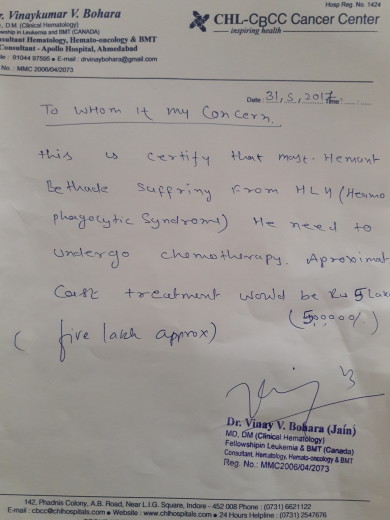 Hosp Reg. No. 1424
r. Vinaykumar V. Bohara
, D.M. (Clinical Hematology)
wship in Leukemia and BMT (CANADA)
nsultant Hematology, Hemato-oncology & BMT
Consultant - Apollo Hospital, Ahmedabad
ile : 91044 97595 • E-mail : drvinaybohara@gmail.com
No. : MMC 2006/04/2073
CHL-CBCC Cancer Center
inspiring health
Date : 31, 5, 2017 Time :
To Whom it my Concern.
this is certify that mast. Hemant
Bethade suffring from HLH (Hemo
phagocytic Syndrome) He need to
undergo chemotherapy. Aproximat
Cast treatment would be Rs 5 Lak
(5,00000/.)
( five lakh approx)
Dr. Vinay V. Bohara (Jain)
MD, DM (Clinical Hematology)
Fellowshipin Leukemia & BMT (Canada)
Consultant, Hematology, Hemato-oncology & BMT
Reg. No.: MMC2006/04/2073
142, Phadnis Colony, A.B. Road, Near L.I.G. Square, Indore - 452 008 Phone : (0731) 6621122
E-mail : cbcc@chlhospitals.com • Website : www.chlhospitals.com • 24 Hours Helpline : (0731) 2547676